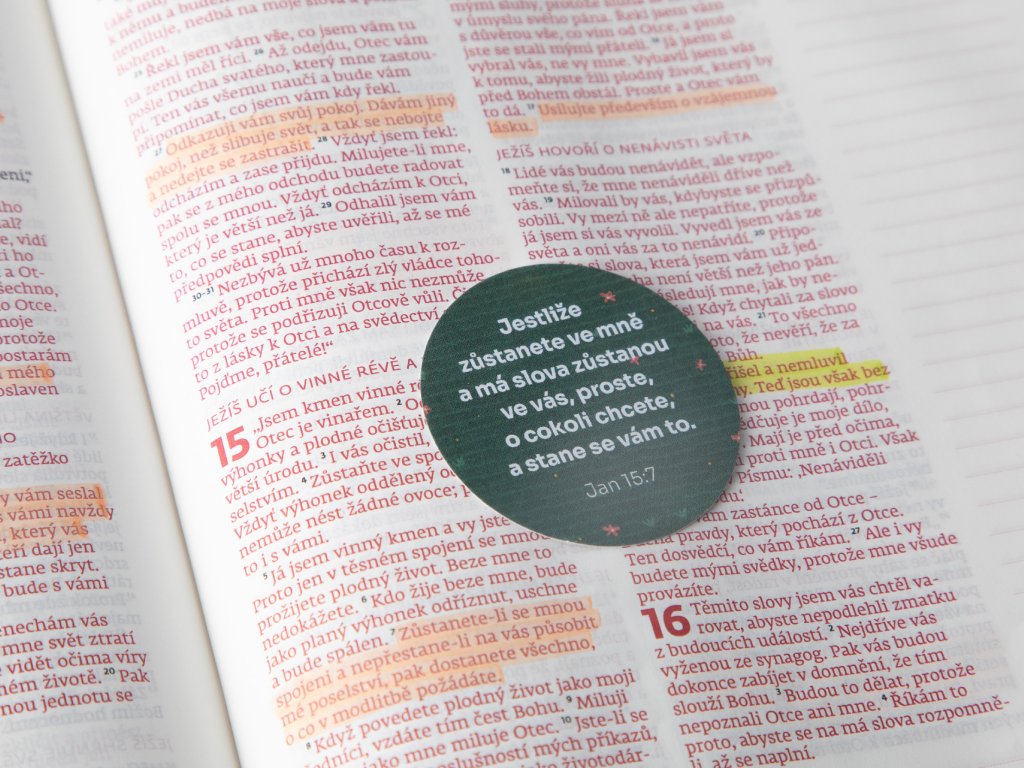 zatěžko
vám seslal
s vámi navždy
který vás
dají jen
stane skryt.
bude s vámi
nechám vás
mne svět ztratí
vidět očima víry
životě. 20 Pak
nou jednotu se
nedbá na moje slova a
nemiluje,
Bohem.
25 Řekl jsem vám vše, co jsem vám tu
na zemi měl říci. 26 Až odejdu, Otec vám
pošle Ducha svatého, který mne zastou-
pí. Ten vás všemu naučí a bude vám
připomínat, co jsem vám kdy řekl.
27 Odkazuji vám svůj pokoj. Dávám jiný
pokoj, než slibuje svět, a tak se nebojte
a nedejte se zastrašit. 28 Vždyť jsem řekl:
odcházím a zase přijdu. Milujete-li mne,
pak se z mého odchodu budete radovat
spolu se mnou. Vždyť odcházím k Otci,
který je větší než já. 29 Odhalil jsem vám
to, co se stane, abyste uvěřili, až se mé
předpovědi splní.
30-31 Nezbývá už mnoho času k roz-
mluvě, protože přichází zlý vládce toho-
to světa. Proti mně však nic nezmůže,
protože se podřizuji Otcově vůli.
to z lásky k Otci a na svědectví
pojdme, přátelé!“
JEŽÍŠ UČÍ O VINNÉ RÉVĚ A
15 „Jsem kmen vinné
Otec je vinařem. 2
výhonky a plodné očišťuj
větší úrodu. 3 I vás očistil,
selstvím. 4 Zůstaňte ve spo
Vždyť výhonek oddělený o
nemůže nést žádné ovoce;
to i s vámi.
5 Já jsem vinný kmen a vy jste
Proto jen v těsném spojení se mnou
prožijete plodný život. Beze mne to
nedokážete. 6 Kdo žije beze mne, bude
jako planý výhonek odříznut, uschne
a bude spálen. 7 Zůstanete-li se mnou
spojeni a nepřestane-li na vás působit
mé poselství, pak dostanete všechno,
o co v modlitbě požádáte.
8 Když povedete plodný život jako moji
učedníci, vzdáte tím čest Bohu. 9 Miluji
jako mne miluje Otec. 10 Jste-li se
poslušností mých příkazů,
Jestliže
zůstanete ve mně
a má slova zůstanou
ve vás, proste,
o cokoli chcete,
a stane se vám to.
Jan 15:7
v úmyslu svého pána. Řekl jsem vám
s důvěrou vše, co vím od Otce, a proto
jste se stali mými přáteli. 16 Já jsem si
vybral vás, ne vy mne. Vybavil jsem vás
k tomu, abyste žili plodný život, který by
před Bohem obstál. Proste a Otec vám
to dá. 17 Usilujte především o vzájemnou
lásku.
JEŽÍŠ HOVOŘÍ O NENÁVISTI SVĚTA
18 Lidé vás budou nenávidět, ale vzpo-
meňte si, že mne nenáviděli dříve než
vás. 19 Milovali by vás, kdybyste se přizpů-
sobili. Vy mezi ně ale nepatříte, protože
já jsem si vás vyvolil. Vyvedl jsem vás ze
světa a oni vás za to nenávidí. 20 Připo-
si slova, která jsem vám už jed-
není větší než jeho pán.
sledují mne, jak by ne-
Když chytali za slovo
na vás. 21 To všechno
proto, že nevěří, že za
Bůh.
řišel a nemluvil
Teď jsou však bez
nou pohrdají, pohr-
dčuje je moje dílo,
Mají je před očima,
proti mně i Otci. Však
Písmu: ‚Nenáviděli
vám zastánce od Otce –
pravdy, který pochází z Otce.
Ten dosvědčí, co vám říkám. 27 Ale i vy
budete mými svědky, protože mne všude
provázíte.
16 Těmito slovy jsem vás chtěl va-
rovat, abyste nepodlehli zmatku
z budoucích událostí. 2 Nejdříve vás
vyženou ze synagog. Pak vás budou
dokonce zabíjet v domnění, že tím
slouží Bohu. 3 Budou to dělat, protože
nepoznali Otce ani mne. 4 Říkám to
proto, abyste se na má slova rozpomně-
li, až se to naplní.